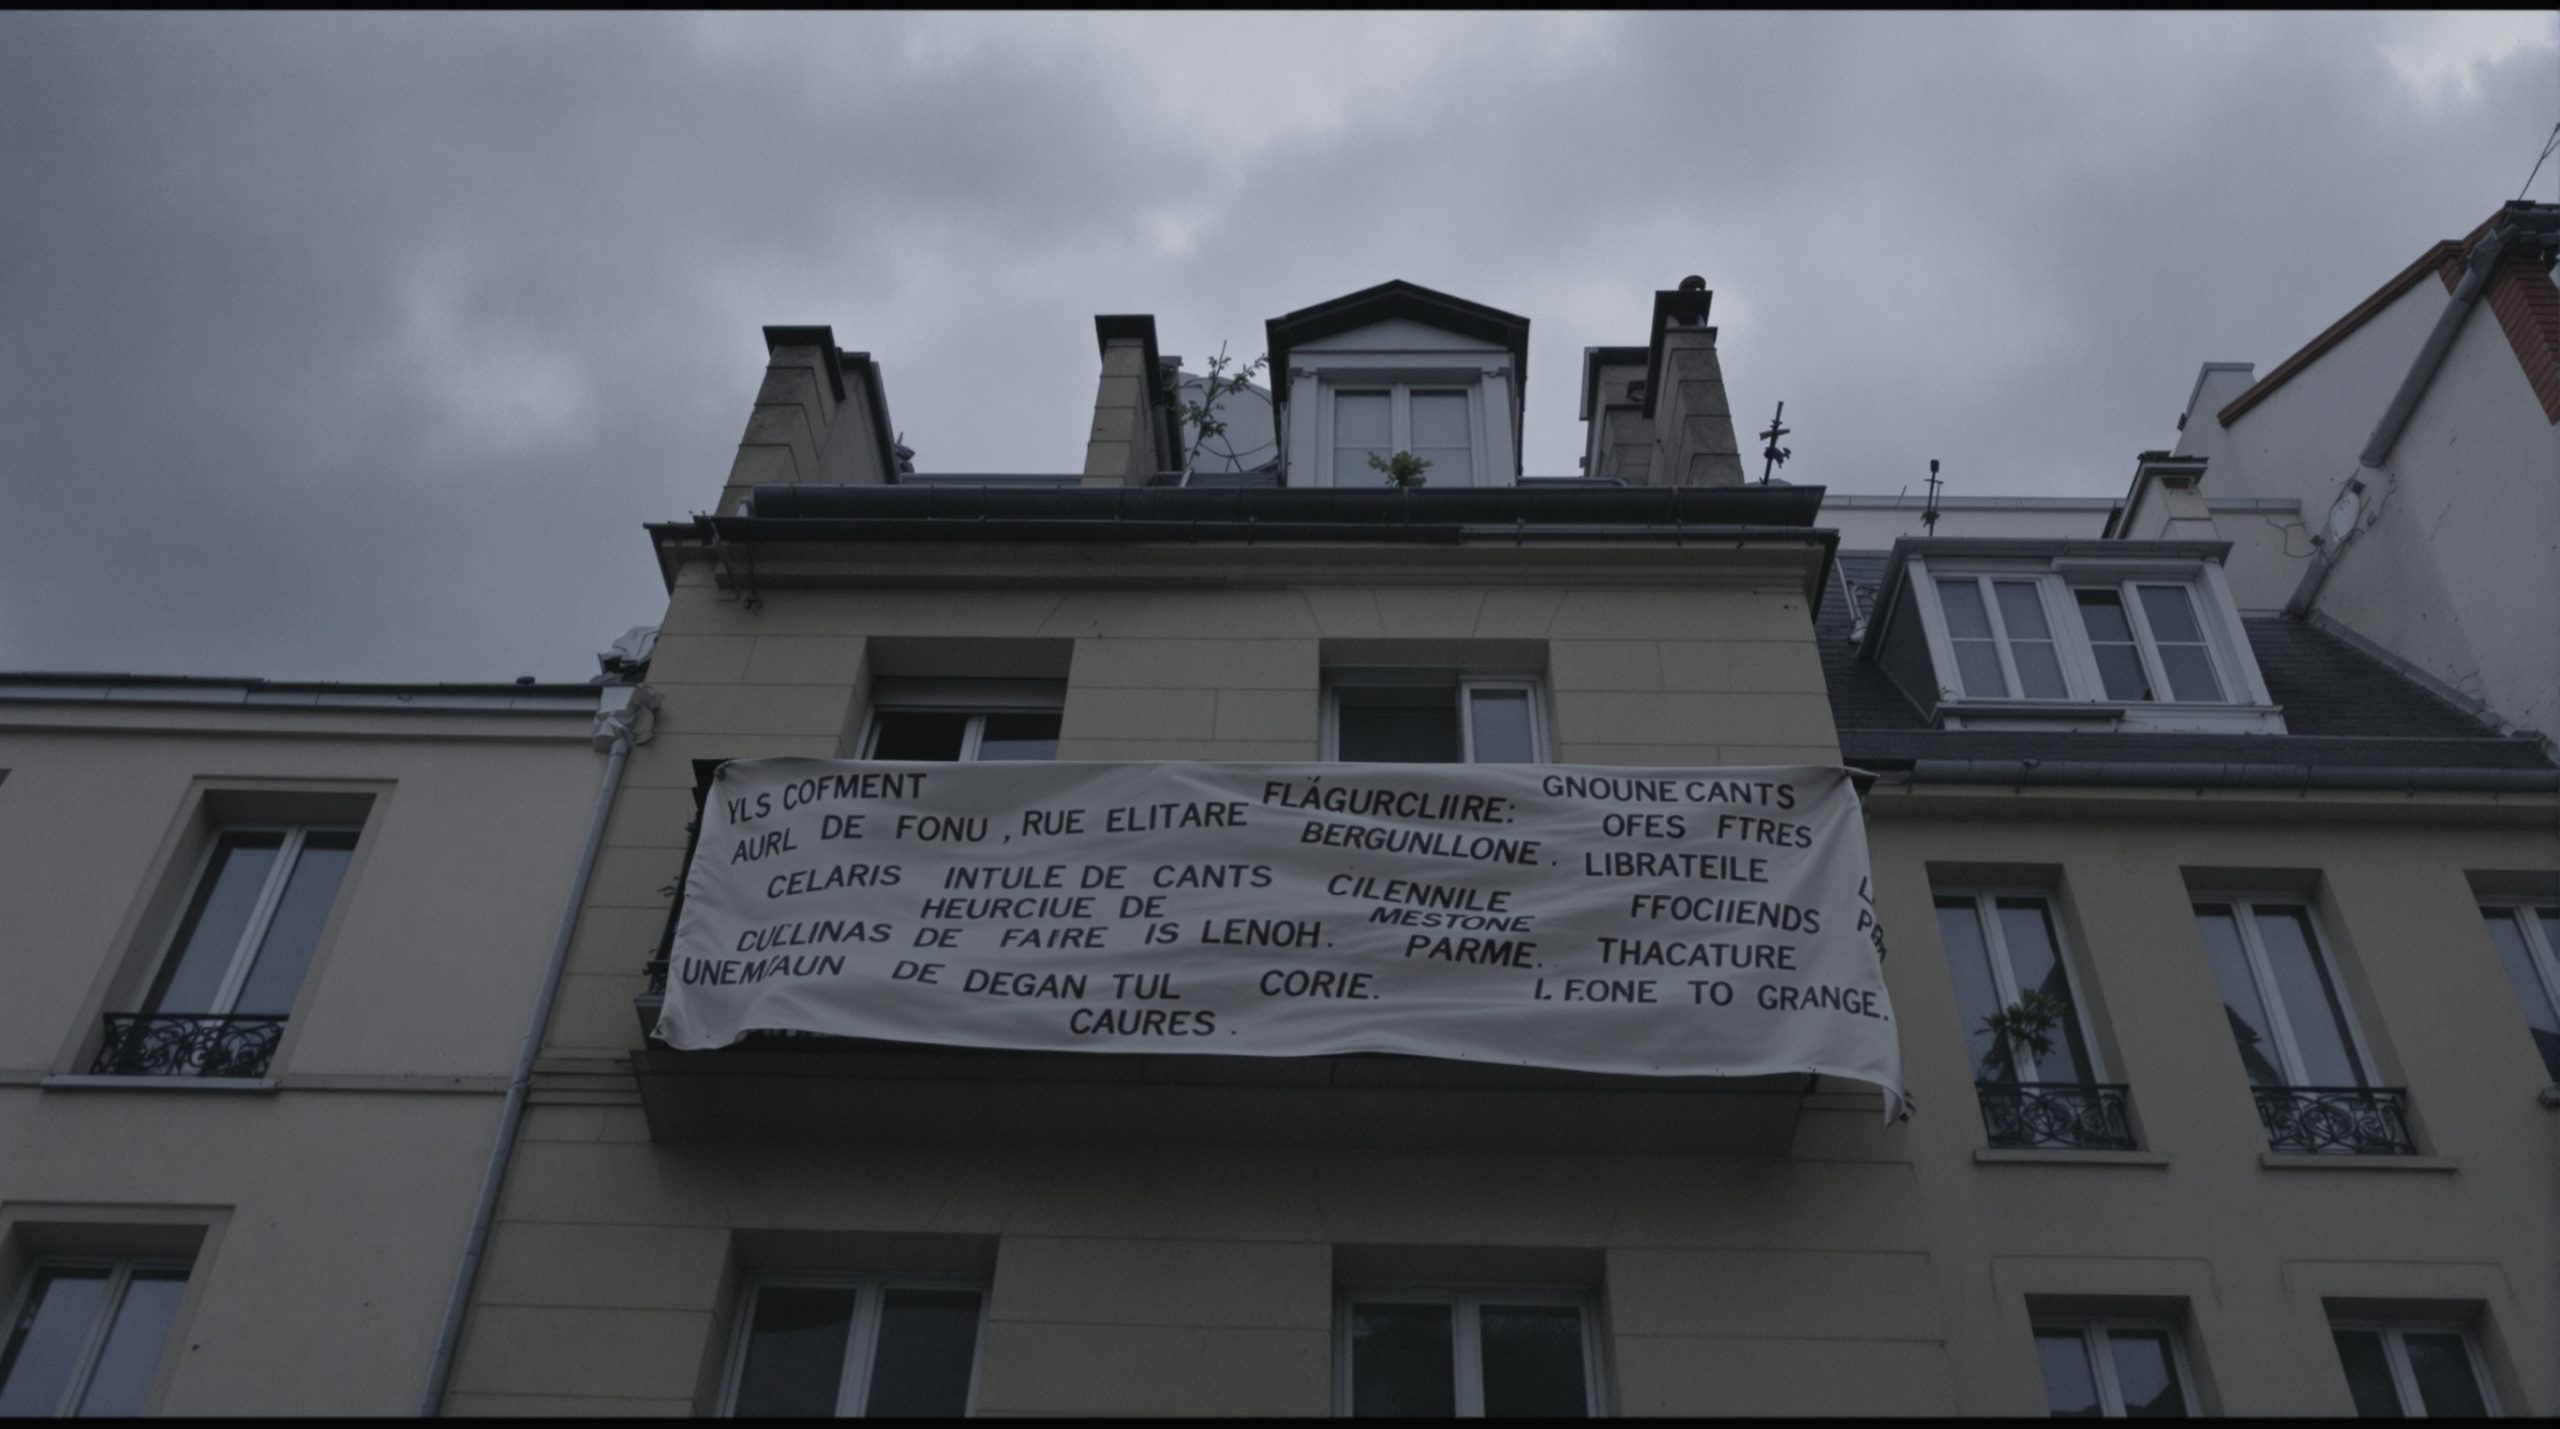 YLS COFMENT
AURL DE FONU , RUE ELITARE
CELARIS INTULE DE CANTS
HEURCIUE DE
CUCLINAS DE FAIRE IS LENOH.
DE DEGAN TUL CORIE.
CAURES .
FLÁGURCLIIRE:
BERGUNLLONE .
CILENNILE
MESTONE
PARME.
GNOUNE CANTS
OFES FTRES
LIBRATEILE
FFOCIIENDS
THACATURE
I. FONE TO GRANGE.